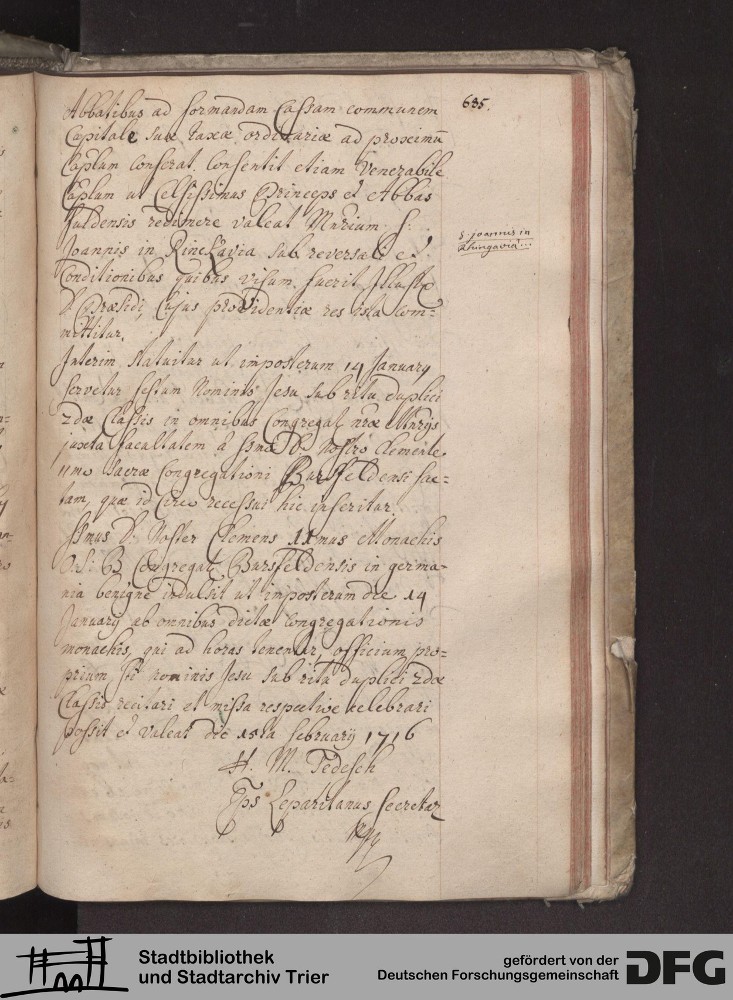 685.
Abbatibus ad formandam Cassam communem
Capitale suæ taxæ ordinariæ ad proximū
Caplum conferat. Consentit etiam Venerabile
Caplum ut Celsissimus Princeps et Abbas
fuldensis redimere valeat Mnrium S:
Joannis in Ringavia sub reversali et
Conditionibus quibus visum fuerit Illustr
D. Præsidi, Cujus providentiæ res ista Com=
mittitur.
S. joannis in
Rhingavia...
Interim statuitur ut imposterum 14 January
servetur festum Nominis Jesu sub ritu duplici
2dæ Classis in omnibus Congregat. nræ Mnrijs
juxta facultatem â ssmo D. Nostro Clemente
11mo sacræ Congregationi Bursfeldensi fac=
tam, quæ id Circo recessui hic inseritur.
ssmus D. Noster Clemens 11mus Monachis
O. S: B Congregat. Bursfeldensis in germa=
nia benigne indulsit ut imposterum die 14
January ab omnibus dictæ congregationis
monachis, qui ad horas tenentur, officium pro=
prium sst nominis Jesu sub ritu duplici 2dæ
Classis recitari et missa respective celebrari
possit et valeat die 15ta february 1716
N. M. Tedesch
Eps Leparitanus secretar
Stadtbibliothek
und Stadtarchiv Trier
gefördert von der
Deutschen Forschungsgemeinschaft
DFG